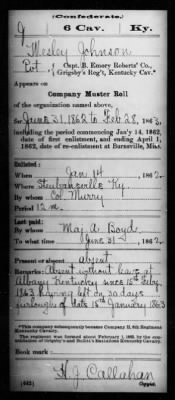 (Confederate.)
J 6 Cav. Ky.
Wesley Johnson
Pvt., Capt. B. Emory Roberts' Co.,
Grigsby's Reg't, Kentucky Cav.*
Appears on
Company Muster Roll
of the organization named above,
for June 31, 1862 to Feb 28, 1863,
including the period commencing Jan'y 14, 1862,
date of first enlistment, and ending April 1,
1862, date of re-enlistment at Burnsville, Miss.
Enlisted:
When Jan 14, 1862.
Where Ky.
By whom Col. Murry
Period 12 m.
Last paid:
By whom Maj A. Boyd
To what time June 31, 1862.
Present or absent absent
Remarks: Absent without leave at
Albany Kentucky since 15th Feby.
1863 having left on 30 days
furlough of date 15th January 1863
*This company subsequently became Company B, 6th Regiment
Kentucky Cavalry.
The regiment was formed about February 1, 1863, by the
Kentucky Cavalry.
Book mark:
H. J. Callahan
(642) Copyist.